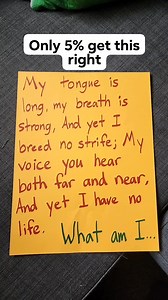 Only 5% get this
right
My tongue is
long, my breath is
strong, And yet I
breed no strife; My
voice you hear
both far and near,
And yet I have no
life. What am I...